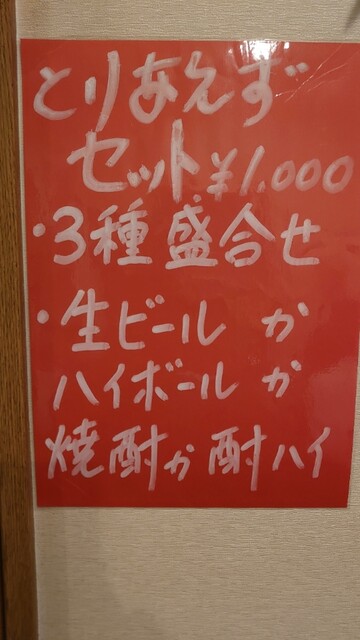 とりあえず
セット ¥1.000
・3種盛合せ
・生ビールか
ハイボールか
焼酎か酎ハイ